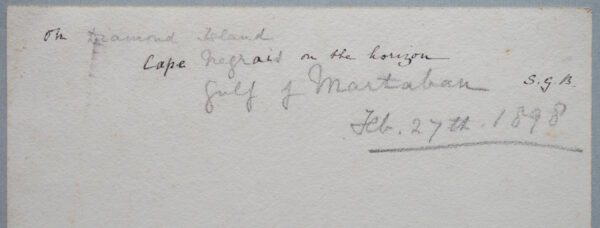 On Diamond Island
Cape Negrais on the horizon
Gulf of Martaban S.G.B.
Feb. 27th. 1898